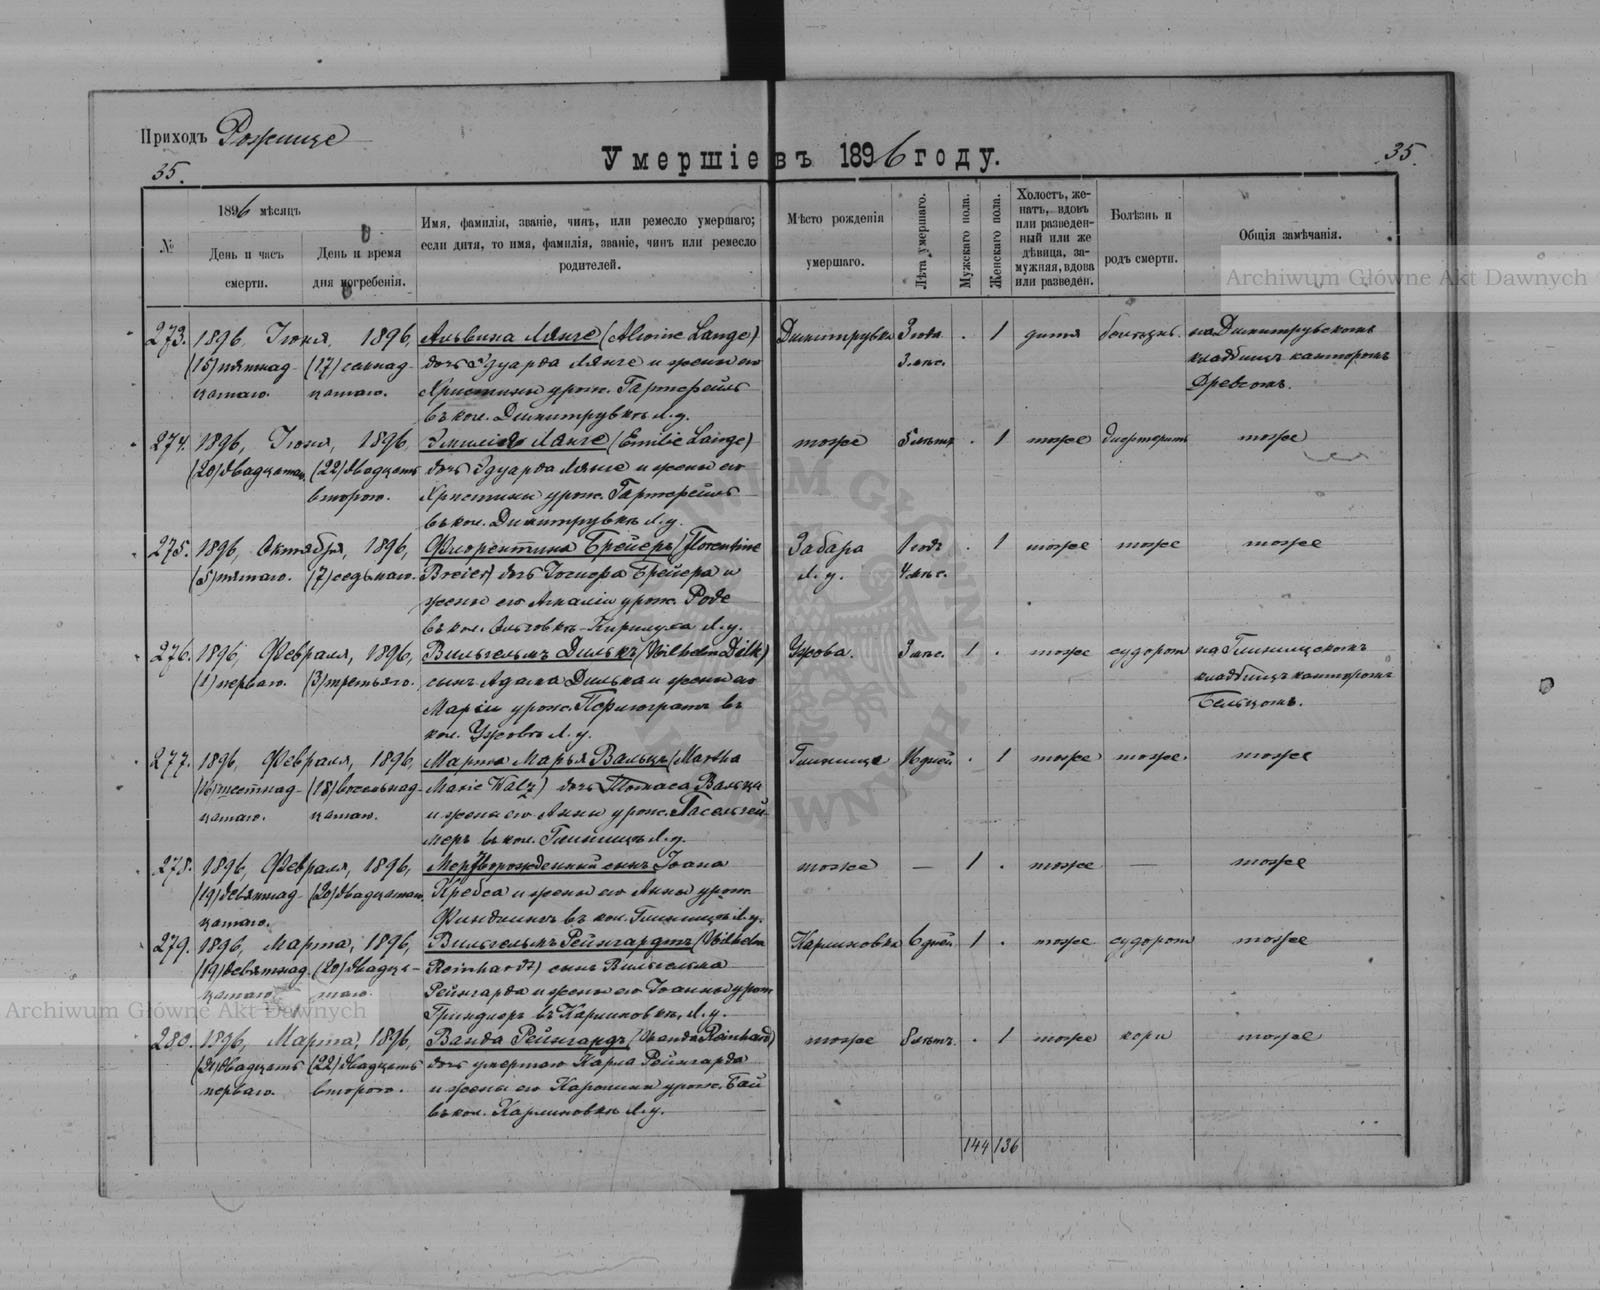 Приходъ Рожище
35.
Умершіе въ 1896 году.
35.
№
1896 мѣсяцъ
День и часъ смерти.
День и время дня погребенія.
Имя, фамилія, званіе, чинъ, или ремесло умершаго;
если дитя, то имя, фамилія, званіе, чинъ или ремесло
родителей.
Мѣсто рожденія
умершаго.
Лѣта умершаго.
Мужскаго пола.
Женскаго пола.
Холостъ, же-
натъ, вдовъ
или разведен-
ный или же
дѣвица, за-
мужняя, вдова
или разведен.
Болѣзнь и
родъ смерти.
Общія замѣчанія.
Archiwum Główne Akt Dawnych
273. 1896, Іюня, 1896, Альвина Лянге (Alwine Lange) Димитрувка 3 года . 1 дитя болѣзнь. на Димитрувскомъ
(15) пятнад- (17) семнад- дочь Эдуарда Лянге и жены его 3 мѣс. кладбищѣ канторомъ
цатаго. цатаго. Христины урож. Гартфейль Древсомъ.
въ кол. Димитрувкѣ Л.у.
274. 1896, Іюня, 1896, Эмилія Лянге (Emilie Lange) тоже 5 лѣтъ . 1 тоже дифтеритъ тоже
(20) двадцатаго. (22) двадцать дочь Эдуарда Лянге и жены его
второго. Христины урож. Гартфейль
въ кол. Димитрувкѣ Л.у.
275. 1896, Октября, 1896, Флорентина Брейеръ (Florentine Забара 1 годъ . 1 тоже тоже тоже
(5) пятаго. (7) седьмаго. Breier) дочь Іосифа Брейера и Л.у. 4 мѣс.
жены его Амаліи урож. Роде
въ кол. Ольговкѣ-Кирилуха Л.у.
276. 1896, Февраля, 1896, Вильгельмъ Дилькъ (Wilhelm Dilk) Ужова. 3 мѣс. 1 . тоже судороги на Глинищскомъ
(1) перваго. (3) третьяго. сынъ Адама Дилька и жены его кладбищѣ канторомъ
Маріи урож. въ Бельцомъ.
кол. Ужовѣ Л.у.
277. 1896, Февраля, 1896, Марта Марья Вальцъ (Martha Глинище 16 дней . 1 тоже тоже. тоже
(16) шестнад- (18) восемнад- Marie Walz) дочь Томаса Вальца
цатаго. цатаго. и жены его Анны урож. Гасельгей-
меръ въ кол. Глинищѣ Л.у.
278. 1896, Февраля, 1896, Мертворожденный сынъ Іоана тоже — 1 . тоже тоже
(19) девятнад- (20) двадцатаго. Кребса и жены его Анны урож.
цатаго. въ кол. Глинищѣ Л.у.
279. 1896, Марта, 1896, Вильгельмъ Рейнгардтъ (Wilhelm Карлиновка 6 дней. 1 . тоже судороги тоже
(19) девятнад- (20) двадца- Reinhardt) сынъ Вильгельма
цатаго. таго. Рейнгарда и жены его Іоанны урож.
въ Карлиновкѣ, Л.у.
Archiwum Główne Akt Dawnych
280. 1896, Марта, 1896, Ванда Рейнгардъ (Wanda Reinhard) тоже 8 лѣтъ. . 1 тоже кори тоже
(21) двадцать (22) двадцать дочь умершаго Карла Рейнгарда
перваго. второго. и жены его Каролины урож. Бай
въ кол. Карлиновкѣ Л.у.
144 136